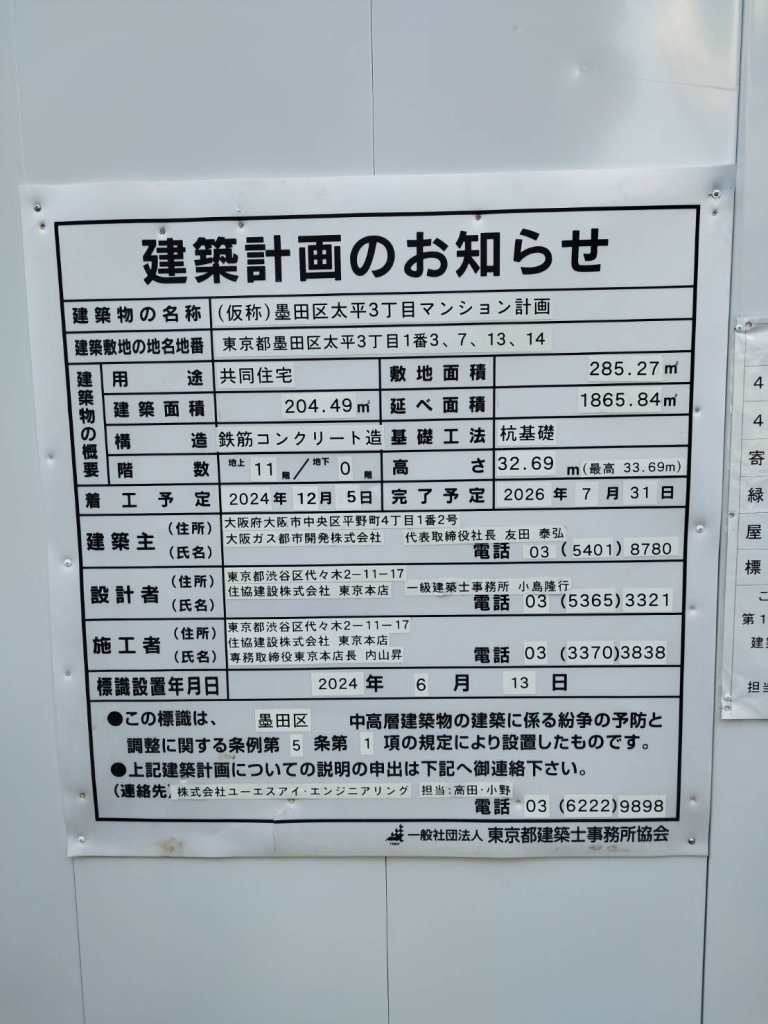 建築計画のお知らせ
建築物の名称 (仮称)墨田区太平3丁目マンション計画
建築敷地の地名地番 東京都墨田区太平3丁目1番3、7、13、14
建築物の概要
用途 共同住宅 敷地面積 285.27㎡
建築面積 204.49㎡ 延べ面積 1865.84㎡
構造 鉄筋コンクリート造 基礎工法 杭基礎
階数 地上 11 階/地下 0 階 高さ 32.69 m(最高 33.69m)
着工予定 2024年 12月 5日 完了予定 2026年 7月 31日
建築主 (住所) 大阪府大阪市中央区平野町4丁目1番2号
(氏名) 大阪ガス都市開発株式会社 代表取締役社長 友田 泰弘
電話 03 (5401) 8780
設計者 (住所) 東京都渋谷区代々木2-11-17
(氏名) 住協建設株式会社 東京本店 一級建築士事務所 小島隆行
電話 03 (5365) 3321
施工者 (住所) 東京都渋谷区代々木2-11-17
住協建設株式会社 東京本店
(氏名) 専務取締役東京本店長 内山昇
電話 03 (3370)3838
標識設置年月日 2024 年 6 月 13 日
●この標識は、 墨田区 中高層建築物の建築に係る紛争の予防と
調整に関する条例第 5 条第 1 項の規定により設置したものです。
●上記建築計画についての説明の申出は下記へ御連絡下さい。
(連絡先) 株式会社ユーエスアイ・エンジニアリング 担当:高田・小野
電話 03 (6222)9898
一般社団法人 東京都建築士事務所協会
4
4
寄
緑
屋
標
こ
第1
建
担当